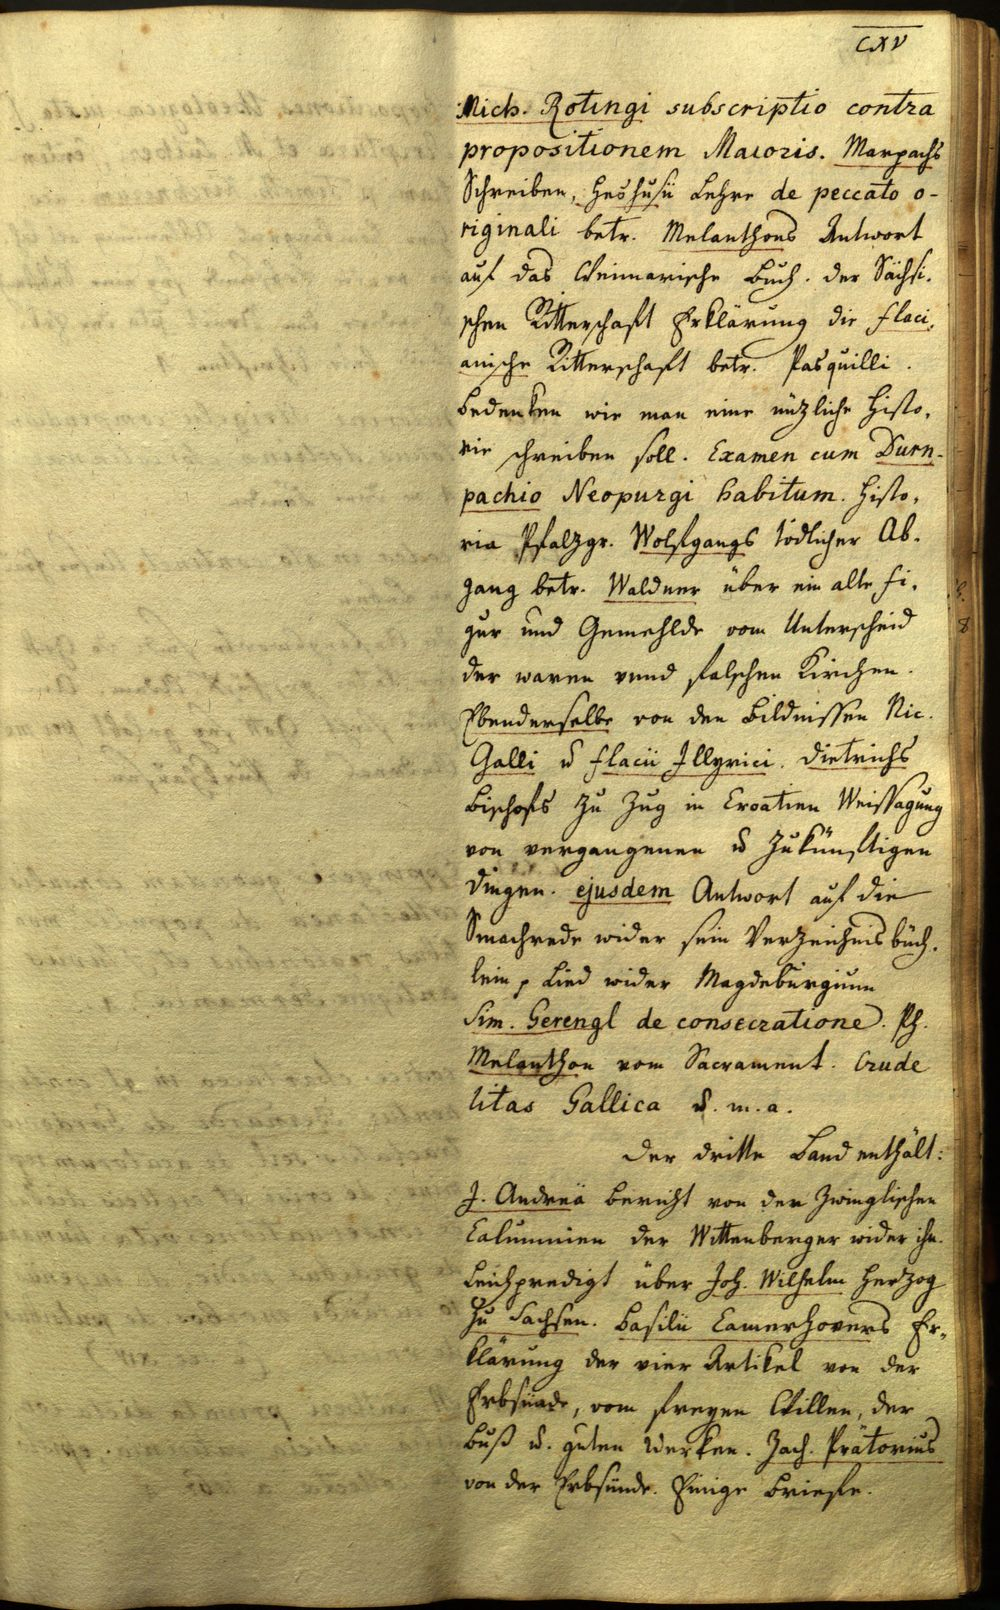 CXV
Mich. Rotingi subscriptio contra
propositionem Maioris. Marpachs
Schreiben, Heshusii Lehre de peccato o-
riginali betr. Melanthons Antwort
auf das Weimarische Buch. der Sächsi-
schen Ritterschaft Erklärung die flaci-
anische Ritterschaft betr. Pasquilli.
Bedenken wie man eine nüzliche Histo-
rie schreiben soll. Examen cum Durn-
pachio Neopurgi habitum. Histo-
ria Pfalzgr. Wolfgangs tödlicher Ab-
gang betr. Waldner über ein alte Fi-
gur und Gemehlde vom Unterscheid
der waren vnnd falschen Kirchen.
Ebenderselbe von den Bildnissen Nic.
Galli u flacii Illyrici. Dietrichs
Bischofs zu Zug in Croatien Weissagung
von vergangenen u zukünftigen
Dingen. ejusdem Antwort auf die
Smachrede wider sein Verzeichnis büch-
lein, Lied wider Magdeburgium
Sim. Gerengl de consecratione. Ph.
Melanthon vom Sacrament. Crude
litas Gallica u. m. a.
Der dritte Band enthält:
J. Andreä Bericht von den Zwinglischen
Calumnien der Wittenberger wider ihn.
Leichpredigt über Joh. Wilhelm Herzog
zu Sachsen. Basilii Camerhovers Er-
klärung der vier Artikel von der
Erbsünde, vom freyen Willen, der
Buß u. guten Werken. Zach. Prätorius
von der Erbsünde. Einige Briefe.